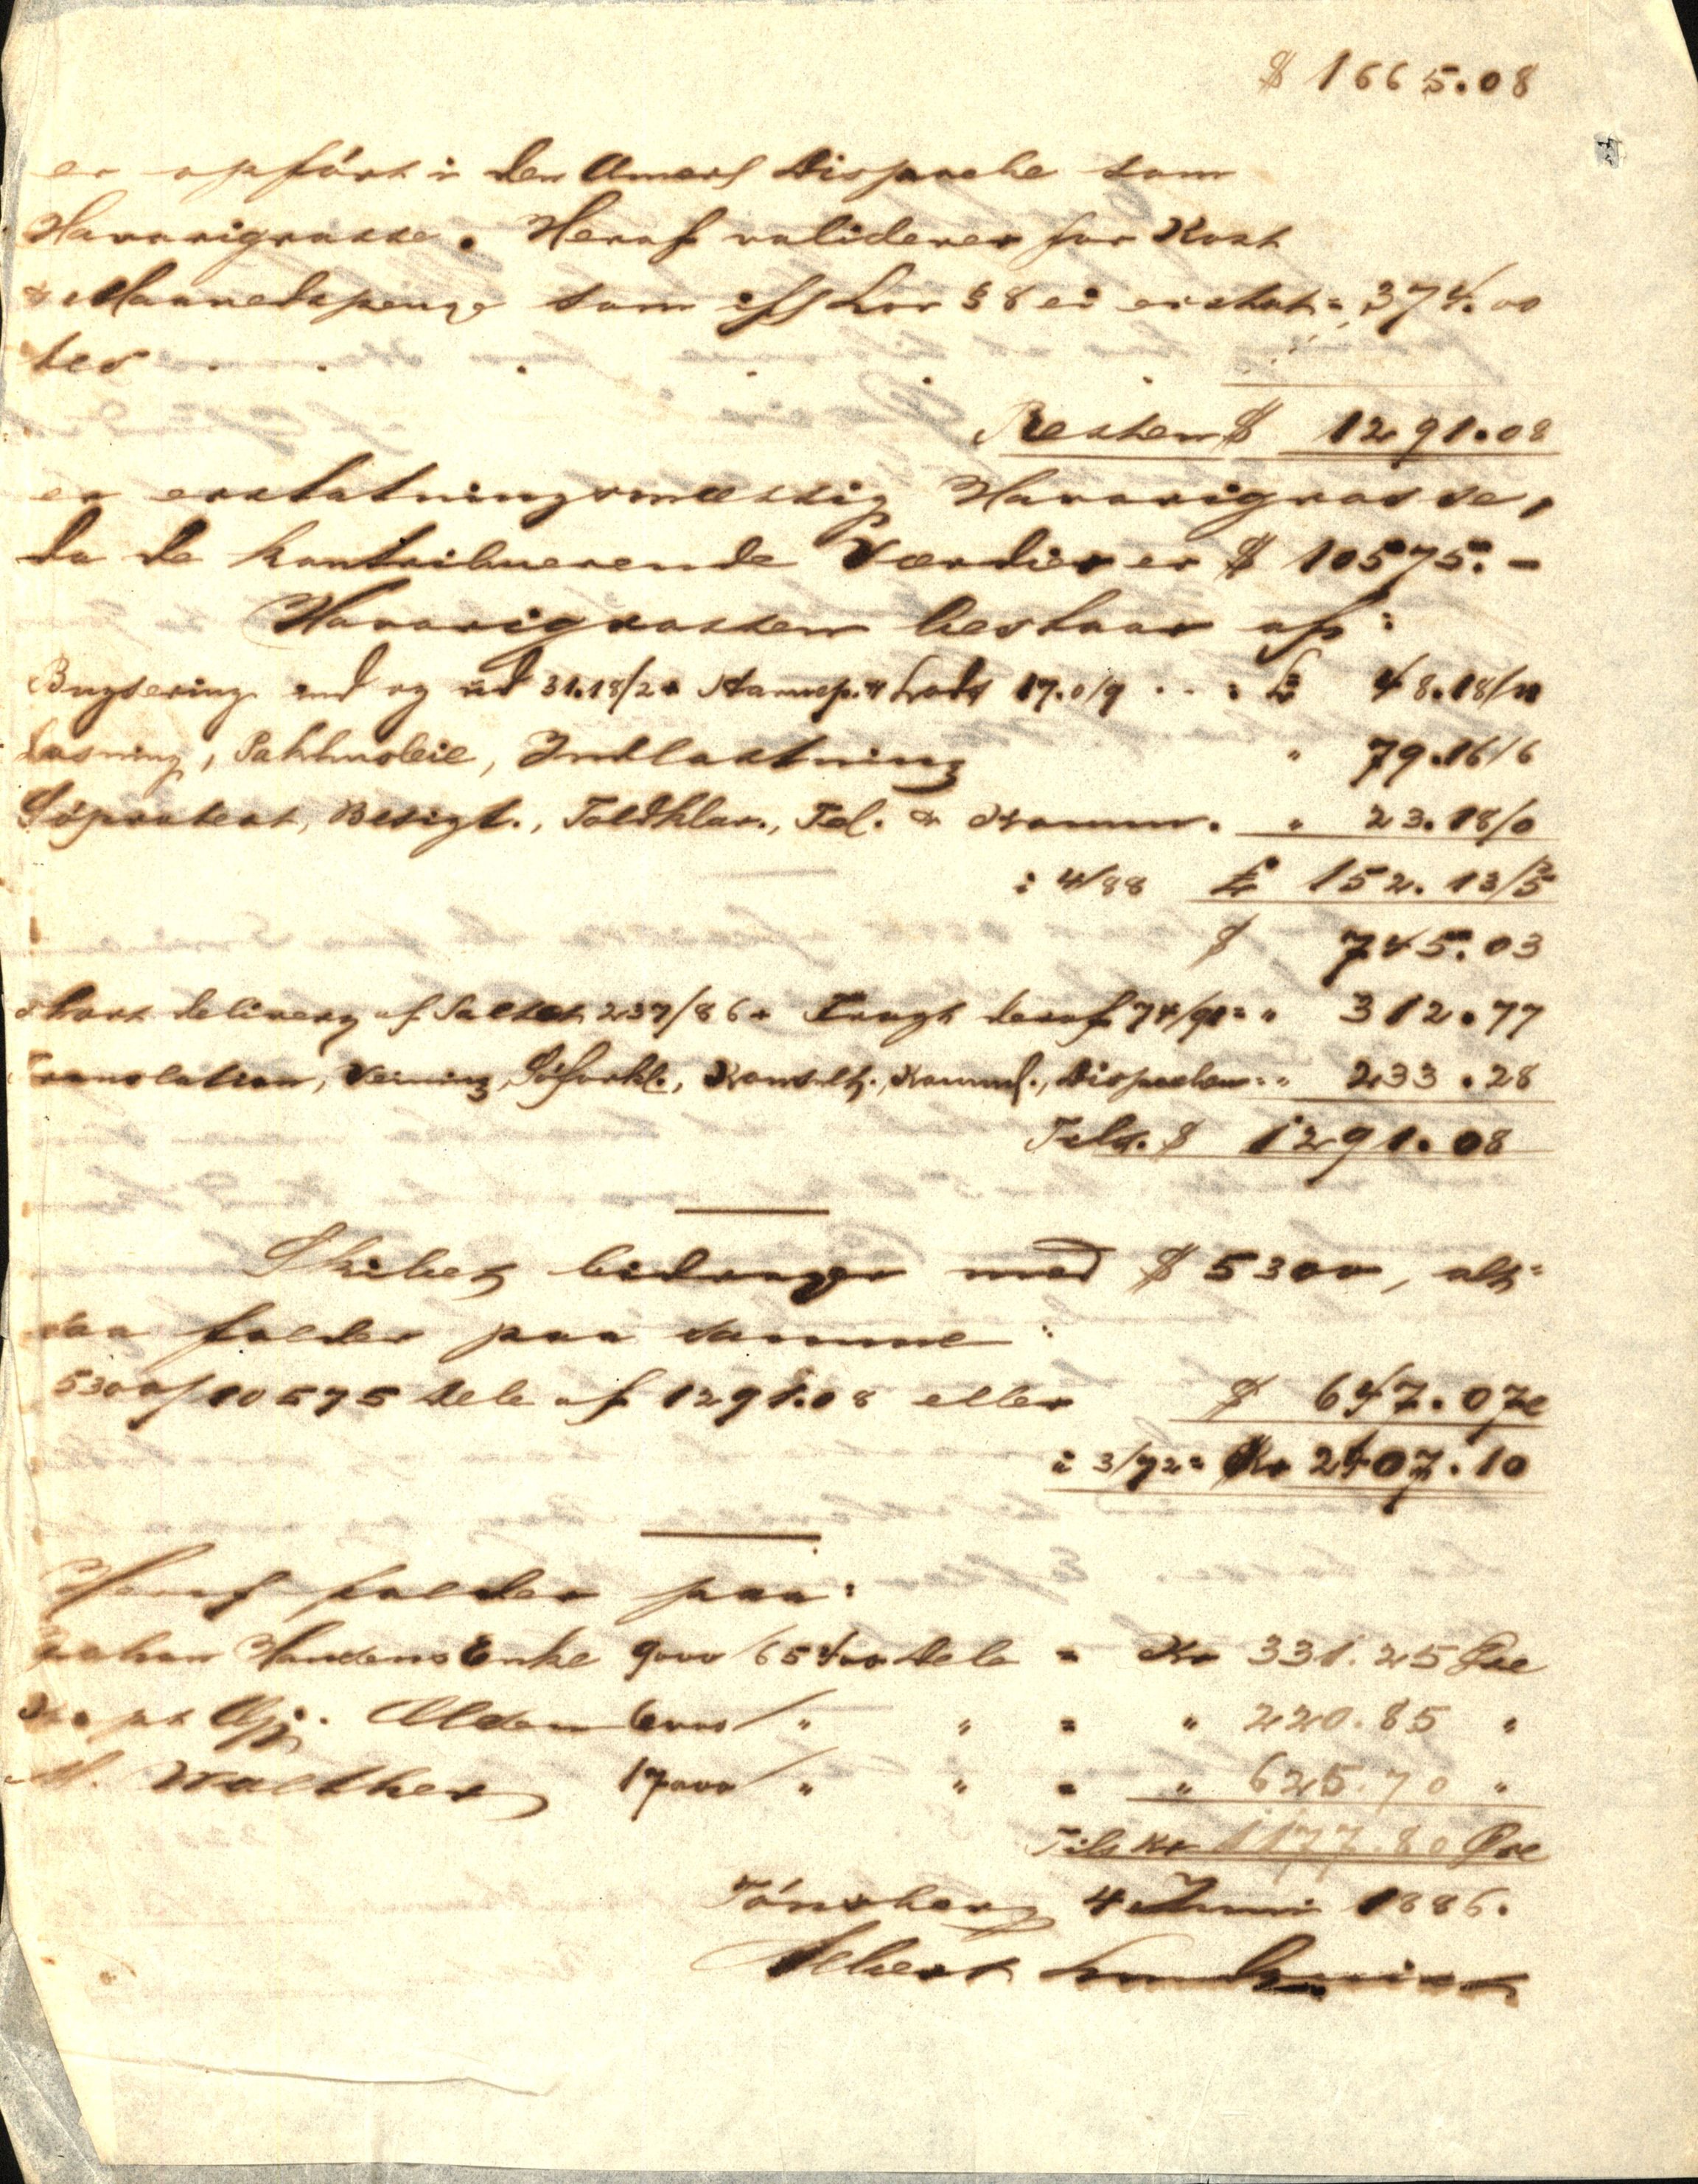 $ 1665.08
er opført i den Amerf Dispache som
Havarigrosse. Heraf validerer for Kost
& Maanedspenge som iflg Lov § 8 ei erstat= 374.00
tes . . . . . .
Resten $ 1291.08
er erstatningsmæssig Havarigrosse,
da de kontribuerende Værdier er $ 10575.-
Havarigrossen bestaar af:
Bugsering ind og ud 31.18/2 + Havnep. & Lods 17.0/9 . . : £ 48.18/11
Losning, Pakhusleie, Indlastning " 79.16/6
Søprotest, Besigt., Toldklar., Tel. & Komm. " 23.18/0
i 4/88 £ 152.13/5
$ 745.03
short delivery af Saltet 237/86 + Fragt deraf 74/91 = " 312.77
Translation, Veining, Søforkl., Konsult., Komm., Dispachen . . " 233.28
Tils. $ 1291.08
Skibet bidrager med $ 5300, alt=
saa falder paa samme:
5300/10575 Dele af 1291.08 eller $ 647.07c
i 3/72 = Kr 2407.10
Heraf falder paa:
Johan Hansens Enke 9000/65400 Dele = Kr 331.25 Øre
Olsen 6000/ " " = " 220.85 "
M. Walther 17000/ " " = " 625.70 "
Tils Kr 1177.80 Øre
Tönsberg 4 Juni 1886.
Albert